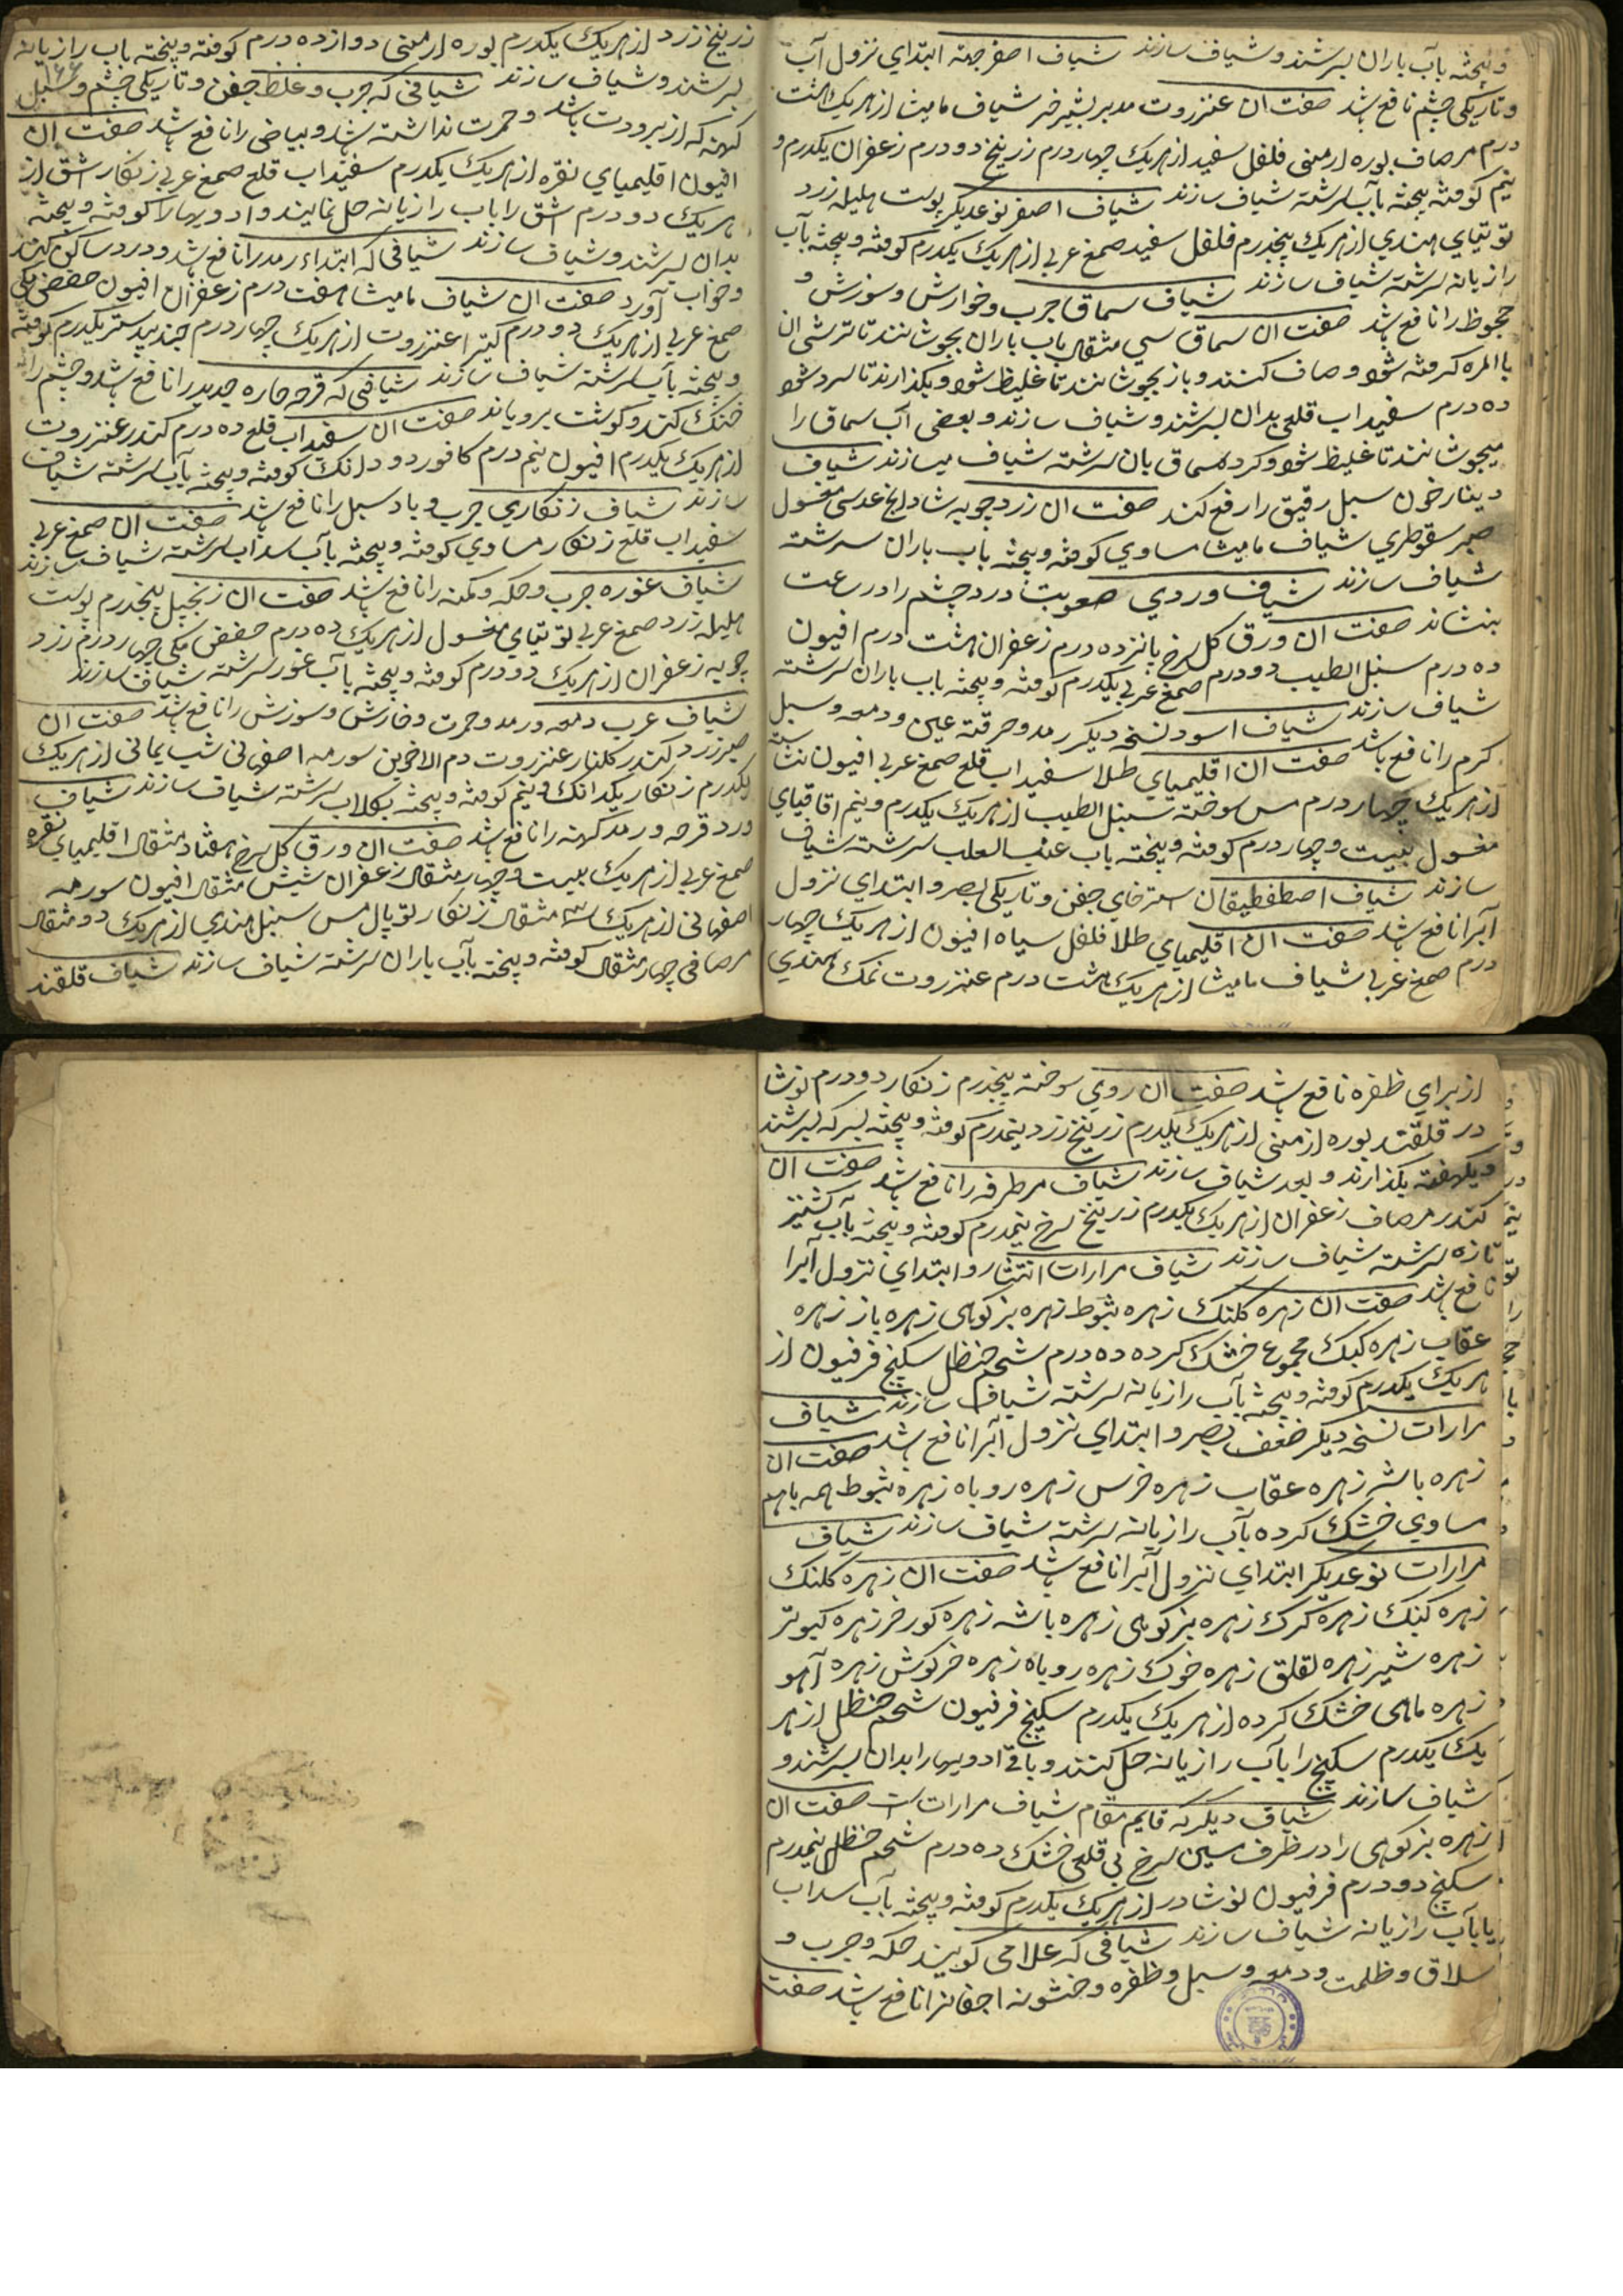 و پیخته بآب باران بسرشند و شیاف سازند شیاف اصفر جهته ابتدای نزول آب
و تاریکی چشم نافع باشد صفت ان عنزروت مدبر بشیر خر شیاف مامیثا از هریک هشت
درم مر صاف بوره ارمنی فلفل سفید از هریک چهار درم زرنیخ دو درم زعفران یکدرم و
نیم کوفته پیخته بآب سرشته شیاف سازند شیاف اصفر نوعدیکر پوست هلیله زرد
توتیای هندی از هریک پنجدرم فلفل سفید صمغ عربی از هریک یکدرم کوفته و پیخته بآب
رازیانه سرشته شیاف سازند شیاف سماق جرب و خوارش و سوزش و
جحوظ را نافع باشد صفت ان سماق سی مثقال باب باران بجوشانند تا ترشی ان
باالمره کرفته شود و صاف کنند و باز بجوشانند تا غلیظ شود و بکذارند تا سرد شود
ده درم سفیداب قلعی بدان بسرشند و شیاف سازند و بعضی آب سماق را
میجوشانند تا غلیظ شود و کرد سماق بان سرشته شیاف میسازند شیاف
دینارخون سبل رقیق را رفع کند صفت ان زردچوبه شادنج عدسی مغسول
صبر سقوطری شیاف مامیثا مساوی کوفته و پیخته باب باران سرشته
شیاف سازند شیاف وردی صعوبت درد چشم را در ساعت
بنشاند صفت ان ورق کل سرخ پانزده درم زعفران هشت درم افیون
ده درم سنبل الطیب دو درم صمغ عربی یکدرم کوفته و پیخته باب باران سرشته
شیاف سازند شیاف اسود نسخه دیکر رمد و حرقته عین و دمعه و سبل
کرم را نافع باشد صفت ان اقلیمیای طلا سفیداب قلع صمغ عربی افیون نشاسته
از هریک چهار درم مس سوخته سنبل الطیب از هریک یکدرم و نیم اقاقیای
مغسول بیست و چهار درم کوفته و پیخته باب عنب الثعلب سرشته شیاف
سازند شیاف اصطفطیقان استرخای جفن و تاریکی بصر و ابتدای نزول
آبرا نافع باشد صفت ان اقلیمیای طلا فلفل سیاه افیون از هریک چهار
درم صمغ عربی شیاف مامیثا از هریک هشت درم عنزروت نمک هندی
زرنیخ زرد از هریک یکدرم بوره ارمنی دوازده درم کوفته و پیخته باب رازیانه
بسرشند و شیاف سازند شیافی که جرب و غلظ جفن و تاریکی چشم و سبل
کهنه که از برودت باشد و حمرت نداشته باشد و بیاضی را نافع باشد صفت ان
افیون اقلیمیای نقره از هریک یکدرم سفیداب قلع صمغ عربی زنکار اشق از
هریک دو درم اشق را باب رازیانه حل نمایند و ادویها را کوفته و پیخته
بدان بسرشند و شیاف سازند شیافی که ابتداء رمد را نافع باشد و درد ساکن کند
و خواب آورد صفت ان شیاف مامیثا هفت درم زعفران افیون حضض مکی
صمغ عربی از هریک دو درم کتیرا عنزروت از هریک چهار درم جندبیدستر یکدرم کوفته
و پیخته بآب سرشته شیاف سازند شیافی که قرحه حاره جدید را نافع باشد و چشم را
خنک کند و کوشت برویاند صفت ان سفیداب قلع ده درم کندر عنزروت
از هریک یکدرم افیون نیم درم کافور دو دانک کوفته و پیخته بآب سرشته شیاف
سازند شیاف زنکاری جرب و باد سبل را نافع باشد صفت ان صمغ عربی
سفیداب قلع زنکار مساوی کوفته و پیخته بآب سداب سرشته شیاف سازند
شیاف غوره جرب و حکه و کمنه را نافع باشد صفت ان زنجبیل پنجدرم پوست
هلیله زرد صمغ عربی توتیای مغسول از هریک ده درم حضض مکی چهار درم زرد
چوبه زعفران از هریک دو درم کوفته و پیخته بآب غوره سرشته شیاف سازند
شیاف غرب دمعه و رمد و حمرت و خارش و سوزش را نافع باشد صفت ان
صبر زرد کندر کلنار عنزروت دم الاخوین سورمه اصفهانی شب یمانی از هریک
یکدرم زنکار یکدانک و نیم کوفته و پیخته بکلاب سرشته شیاف سازند شیاف
ورد قرحه و رمد کهنه را نافع باشد صفت ان ورق کل سرخ هفتاد مثقال اقلیمیای نقره
صمغ عربی از هریک بیست و چهار مثقال زعفران شیش مثقال افیون سورمه
اصفهانی از هریک سه مثقال زنکار توپال مس سنبل هندی از هریک دو مثقال
مر صافی چهار مثقال کوفته و پیخته بآب باران سرشته شیاف سازند شیاف قلقند
از برای ظفره نافع باشد صفت ان روی سوخته پنجدرم زنکار دو درم نوشا
در قلقند بوره ارمنی از هریک یکدرم زرنیخ زرد نیمدرم کوفته و پیخته بسرکه بسرشند
و یکهفته بکذارند و بعد شیاف سازند شیاف مر طرفه را نافع باشد صفت ان
کندر مر صاف زعفران از هریک یکدرم زرنیخ سرخ نیمدرم کوفته و پیخته بآب کشنیز
تازه سرشته شیاف سازند شیاف مرارات انتشار و ابتدای نزول آبرا
نافع باشد صفت ان زهره کلنک زهره شبوط زهره بزکوهی زهره باز زهره
عقاب زهره کبک مجموع خشک کرده ده درم شحم حنظل سکبینج فرفیون از
هریک یکدرم کوفته و پیخته بآب رازیانه سرشته شیاف سازند شیاف
مرارات نسخه دیکر ضعف بصر و ابتدای نزول آبرا نافع باشد صفت ان
زهره باشه زهره عقاب زهره خرس زهره روباه زهره شبوط همه باهم
مساوی خشک کرده بآب رازیانه سرشته شیاف سازند شیاف
مرارات نوعدیکر ابتدای نزول آبرا نافع باشد صفت ان زهره کلنک
زهره کبک زهره کرک زهره بزکوهی زهره باشه زهره کورخر زهره کبوتر
زهره شیر زهره لقلق زهره خوک زهره روباه زهره خرکوش زهره آهو
زهره ماهی خشک کرده از هریک یکدرم سکبینج فرفیون شحم حنظل از هر
یک یکدرم سکبینج را بآب رازیانه حل کنند و باقی ادویها را بدان بسرشند و
شیاف سازند شیاف دیکر که قایم مقام شیاف مرارات است صفت ان
زهره بزکوهی را در ظرف مسین سرخ بی قلعی خشک ده درم شحم حنظل نیمدرم
سکبینج دو درم فرفیون نوشادر از هریک یکدرم کوفته و پیخته بآب سداب
یا بآب رازیانه شیاف سازند شیافی که علامی کویند حکه و جرب و
سلاق و ظلمت و دمعه و سبل و ظفره و خشونه اجفانرا نافع باشد صفت